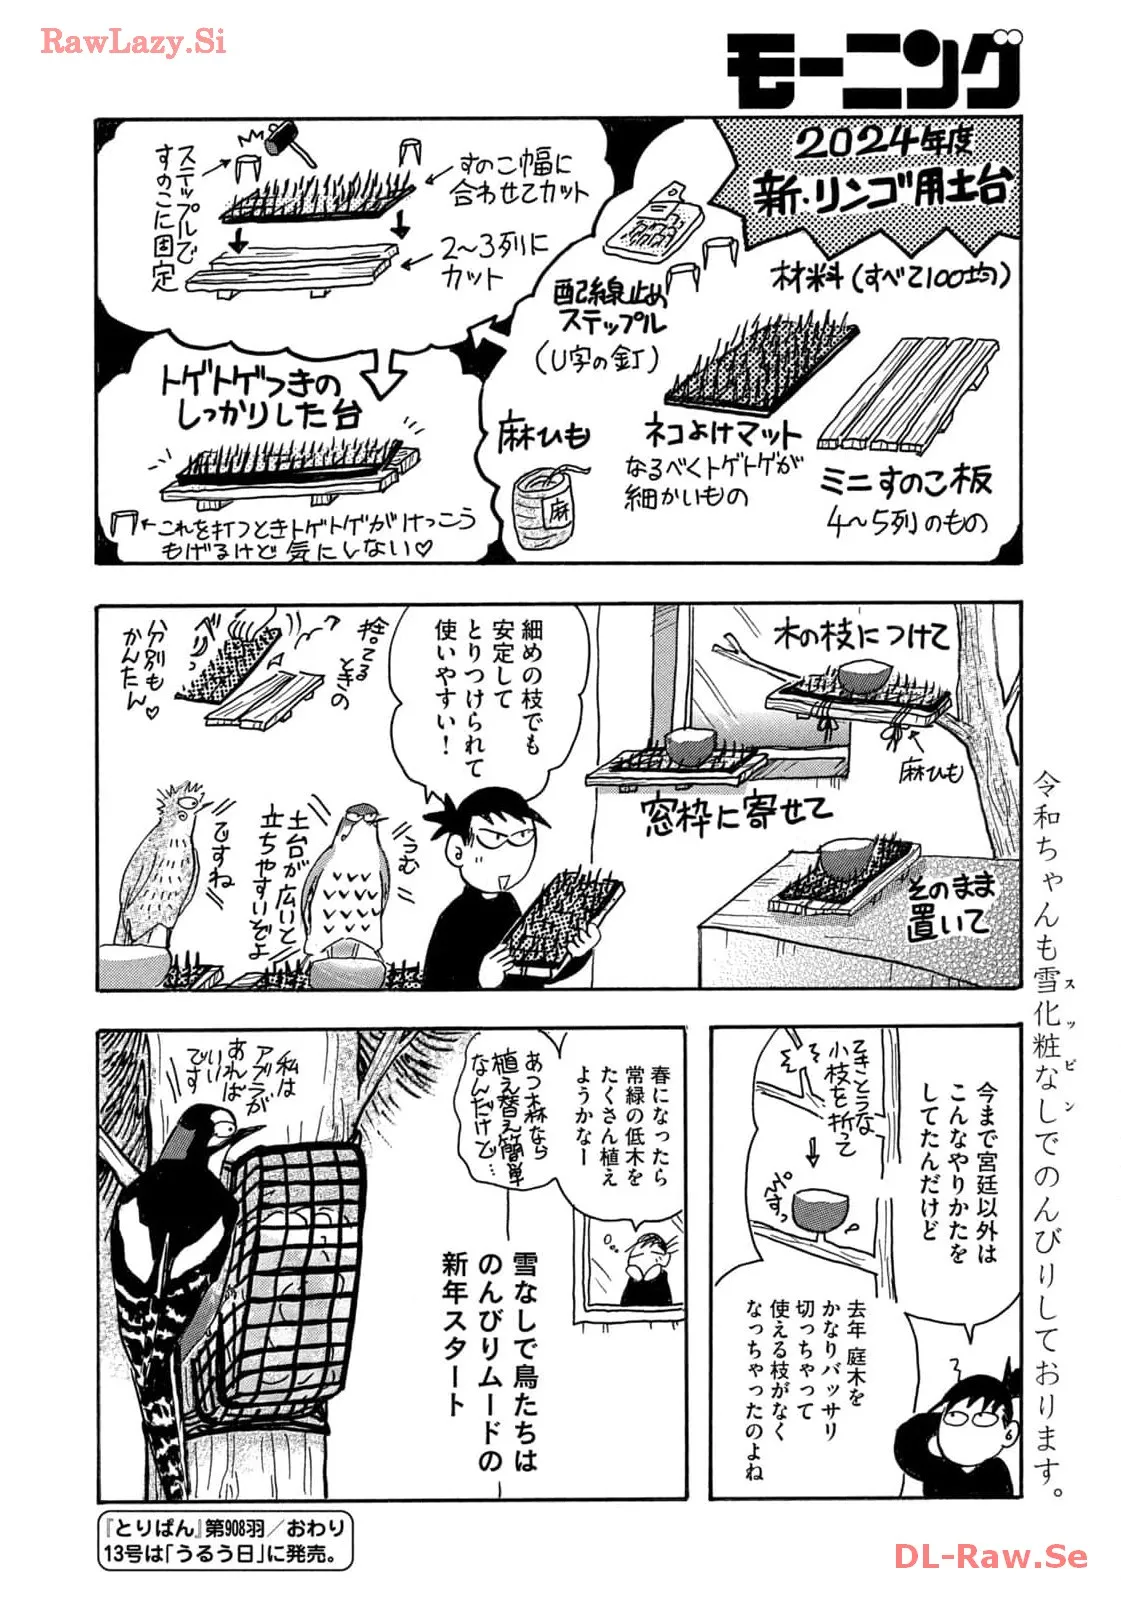 RawLazy.Si
モーニング
2024年度
新・リンゴ用土台
材料(すべて100均)
配線止め
ステップル
(U字の釘)
麻ひも
麻
ネコよけマット
なるべくトゲトゲが
細かいもの
ミニすのこ板
4〜5列のもの
すのこ幅に
合わせてカット
2〜3列に
カット
ステップルで
すのこに固定
トゲトゲつきの
しっかりした台
これを打つときトゲトゲがけっこう
もげるけど気にしない♡
木の枝につけて
麻ひも
窓枠に寄せて
そのまま
置いて
細めの枝でも
安定して
とりつけられて
使いやすい!
捨てる
ときの
ベリベリ
分別も
かんたん♡
うむ
土台が広いと
立ちやすいぞよ
ですね
今まで宮廷以外は
こんなやりかたを
してたんだけど
てきとうな
小枝を折って
去年 庭木を
かなりバッサリ
切っちゃって
使える枝がなく
なっちゃったのよね
春になったら
常緑の低木を
たくさん植え
ようかなー
あつ森なら
植え替え簡単
なんだけど…
雪なしで鳥たちは
のんびりムードの
新年スタート
私は
アブラが
あれば
いい
です
令和ちゃんも雪化粧なしでのんびりしております。
スッピン
『とりぱん』第908羽/おわり
13号は「うるう日」に発売。
DL-Raw.Se